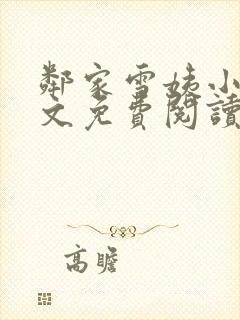 鄰家雪姨小
文免費閱讀
高瞻